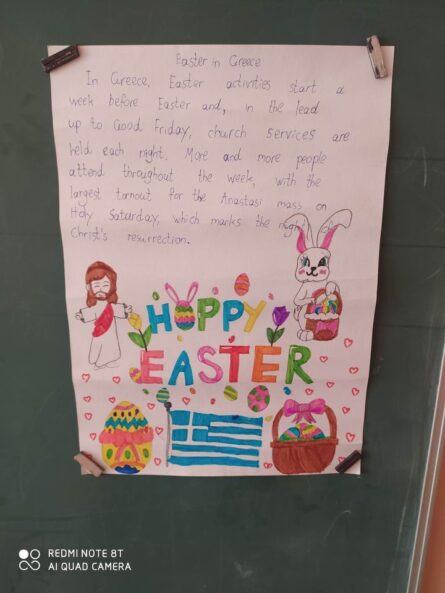 Easter in Greece
In Greece, Easter activities start a
week before Easter and, in the lead
up to Good Friday, church services are
held each night. More and more people
attend throughout the week, with the
largest turnout for the Anastasi mass on
Holy Saturday, which marks the night of
Christ's resurrection.
HAPPY
EASTER
REDMI NOTE 8T
AI QUAD CAMERA